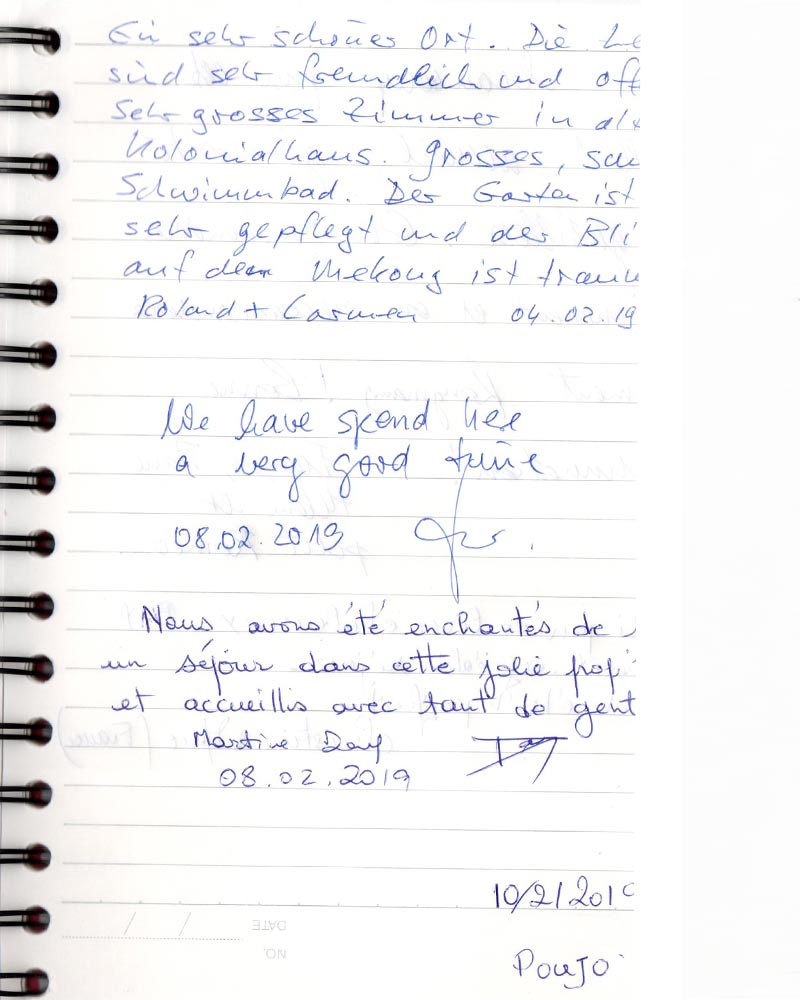 Ein sehr schönes Ort. Die Le
sind sehr freundlich und off
Sehr grosses Zimmer in alt
Kolonialhaus. grosses, sch
Schwimmbad. Der Garten ist
sehr gepflegt und der Bli
auf dem Mekong ist traum
Roland + Carmen 04.02.19
We have spend here
a very good time
08.02.2019
Nous avons été enchantés de
un séjour dans cette jolie prop
et accueillis avec tant de gent
Martine
08.02.2019
10/2/2019
DATE
NO.
Poujo